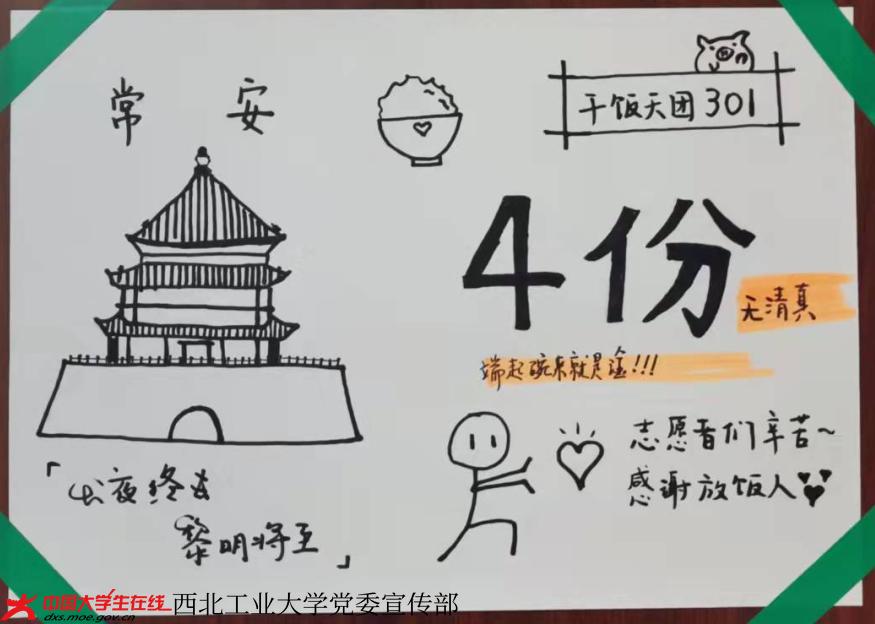 常安
干饭天团301
4份
无清真
端起碗来就是造!!!
志愿者们辛苦~
感谢放饭人
「长夜终去
黎明将至」
中国大学生在线
dxs.moe.gov.cn
西北工业大学党委宣传部